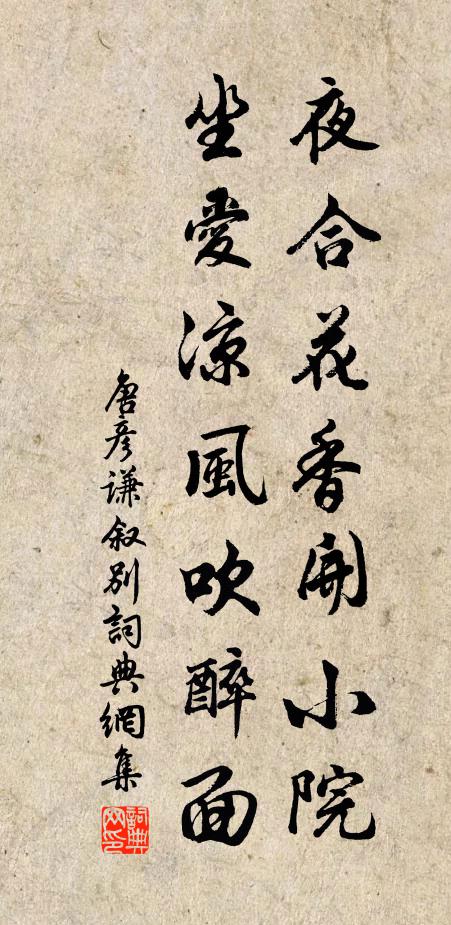 夜合花香開小院
坐愛涼風吹醉面
唐彥謙叙別詞典網集
詞典网印